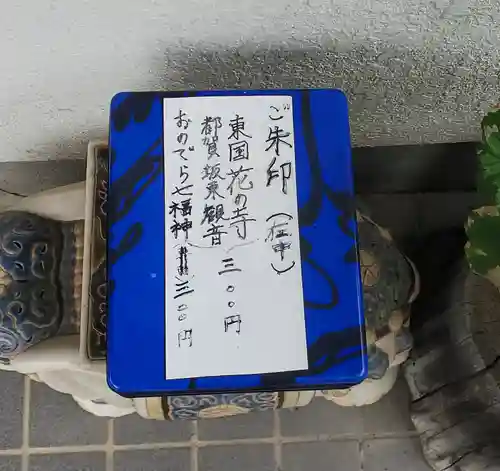 ご朱印(在中)
東国花の寺
都賀坂東観音 三〇〇円
おのでら七福神 三〇〇円